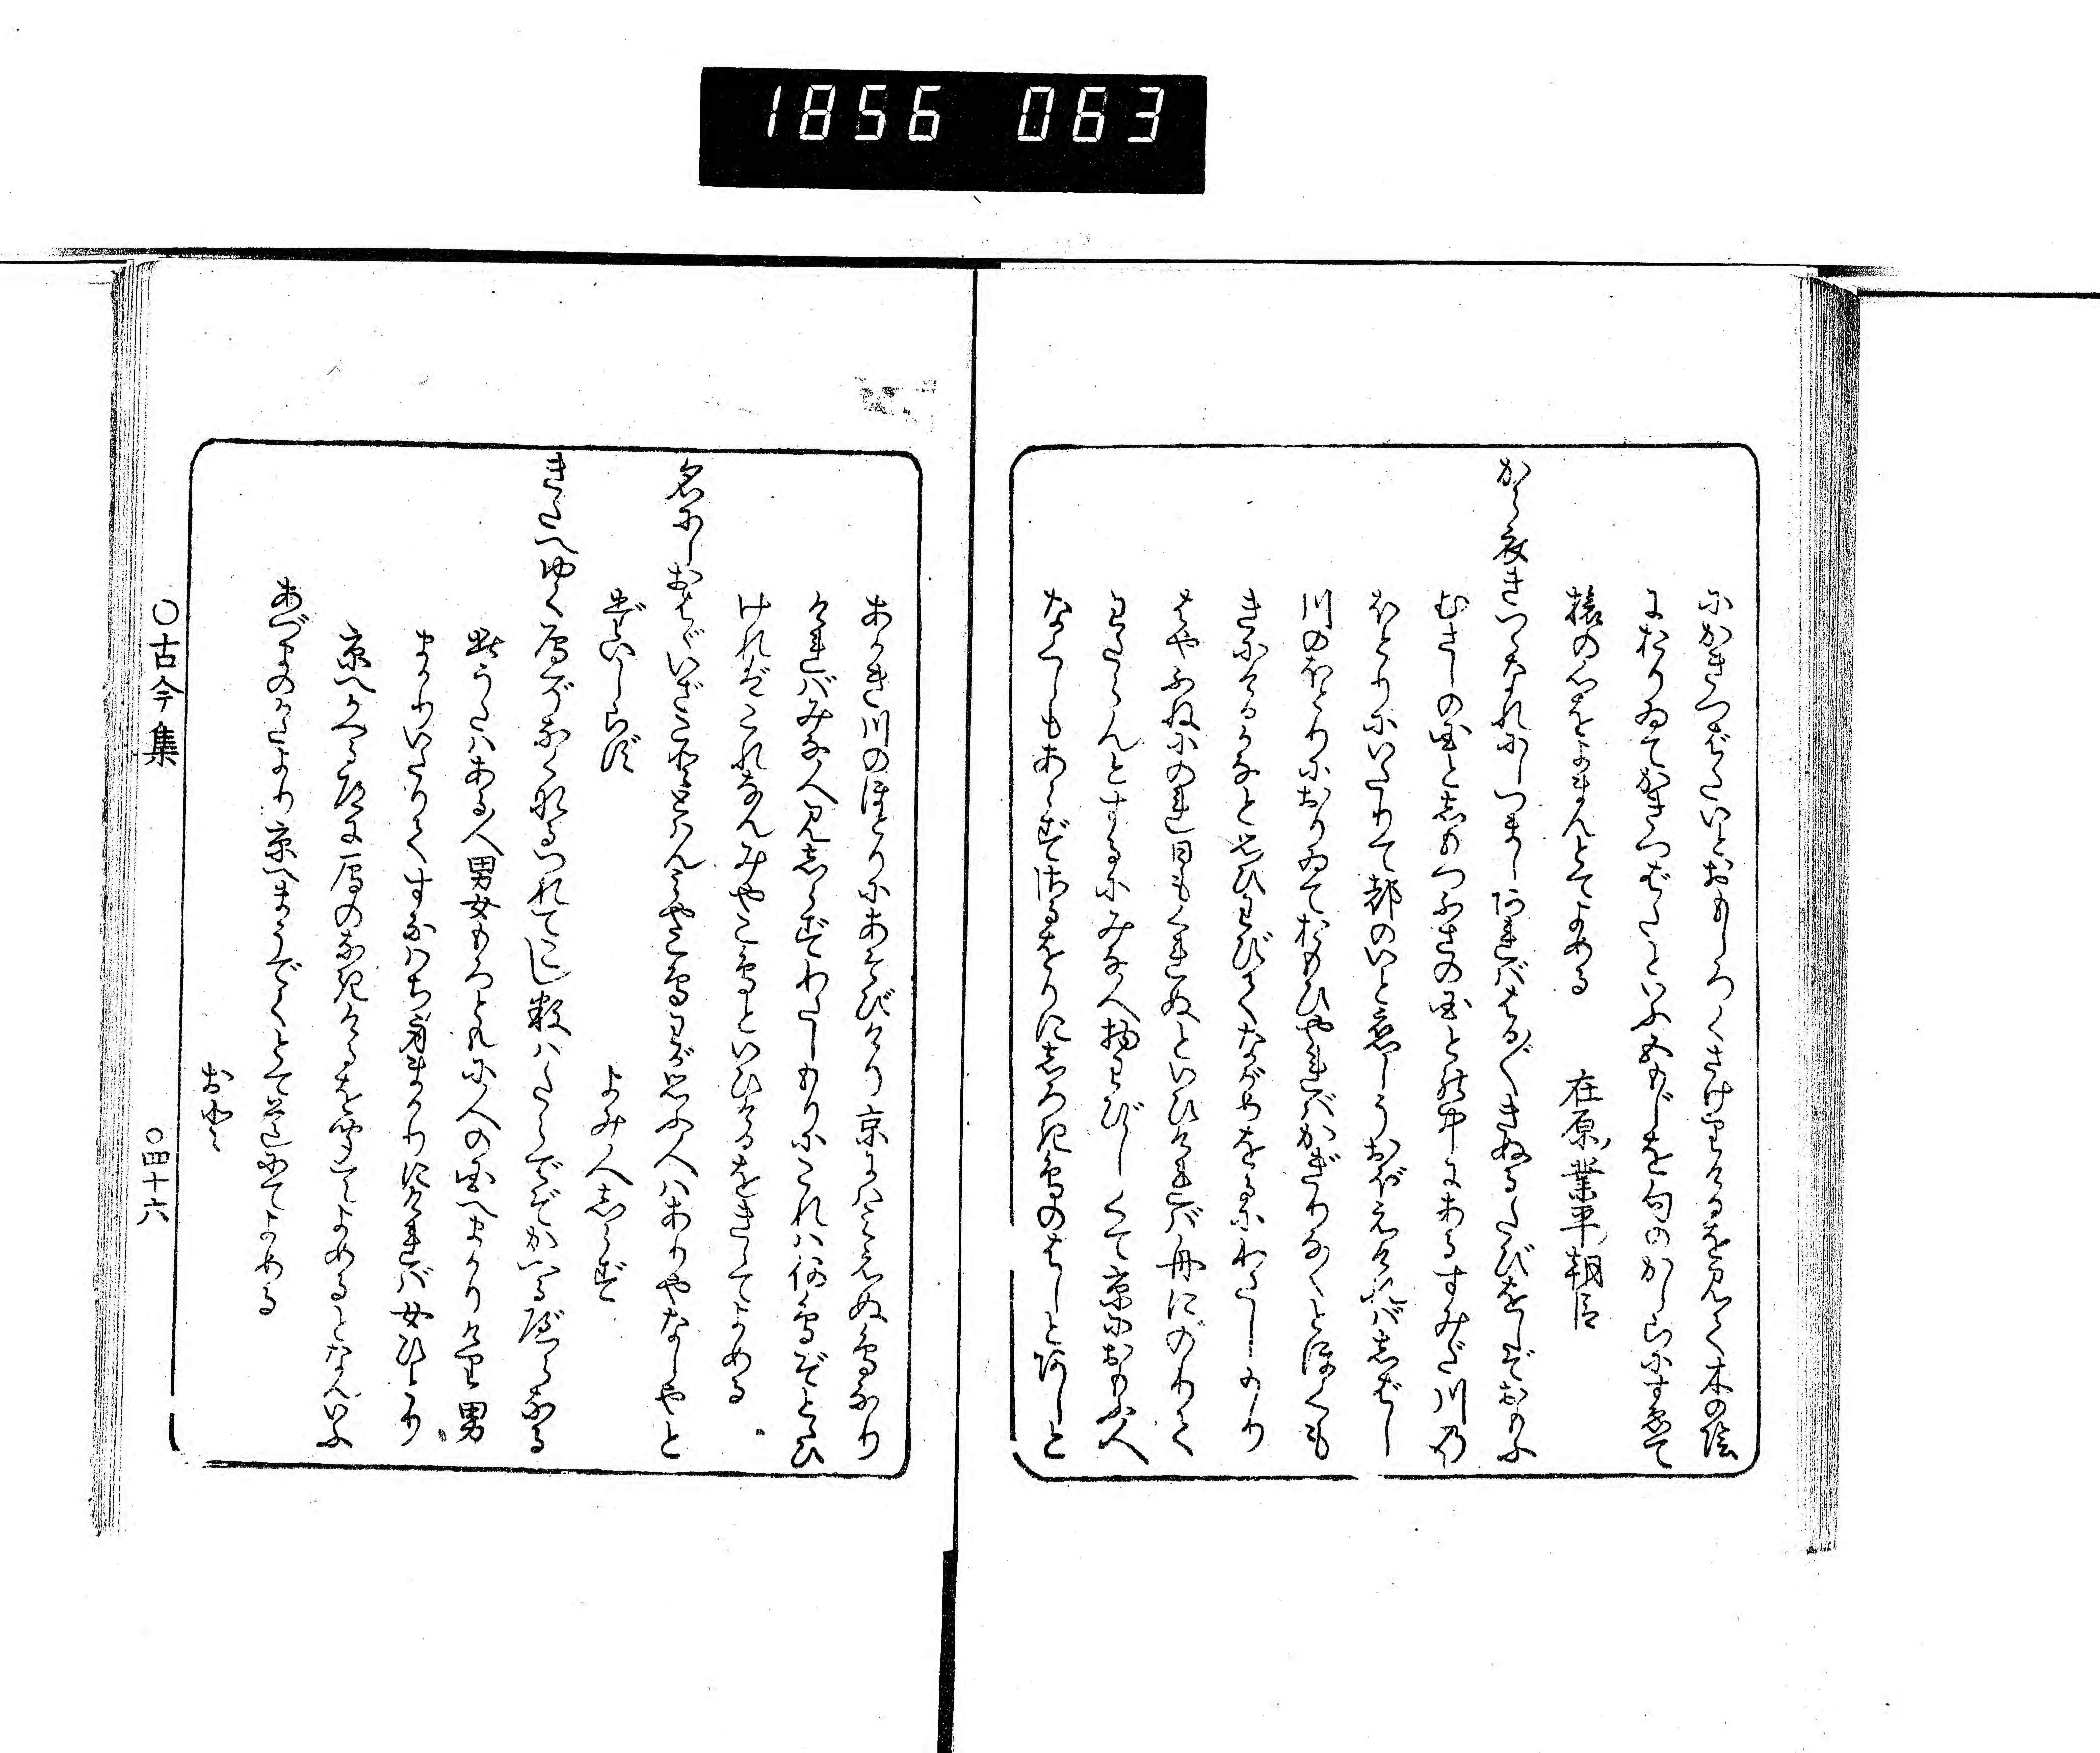 1856 063
にかきつばたいとおもしろくさけりけるを見て木の陰
におりゐてかきつばたといふ五もじを句のかしらにすゑて
旅の心をよまんとてよめる 在原業平朝臣
から衣きつゝなれにしつましあればはる〴〵きぬるたびをしぞおもふ
むさしの国と志もつふさの国との中にあるすみだ川の
ほとりにいたりて都のいと恋しうおぼえければ志ばし
川のほとりにおりゐておもひやればかぎりなくとほくも
きにけるかなと思ひわびてながめをるにわたしもり
はやふねにのれ日もくれぬといひければ舟にのりて
わたらんとするにみな人物わびしくて京におもふ人
なくしもあらずさるをりに志ろき鳥のはしとあしと
あかき川のほとりにあそびけり京にはみえぬ鳥なり
ければみな人見志らずわたしもりにこれは何鳥ぞとひ
ければこれなんみやこ鳥といひけるをきゝてよめる
名にしおはゞいざことゝはんみやこ鳥わが思ふ人はありやなしやと
題しらず よみ人志らず
きたへゆく雁ぞなくなるつれてこし数はたらでぞかへるべらなる
此うたはある人男女もろともに人の国へまかりけり男
まかりいたりてすなはち身まかりにければ女ひとり
京へかへる道に雁のなきけるを聞てよめるとなんいふ
あづまのかたより京へまうでくとて道にてよめる
おと
○古今集 ○四十六